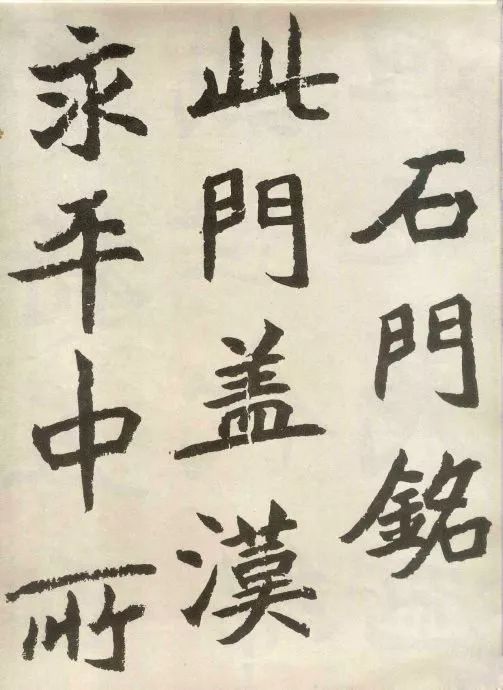 石門銘
此門蓋漢
永平中所